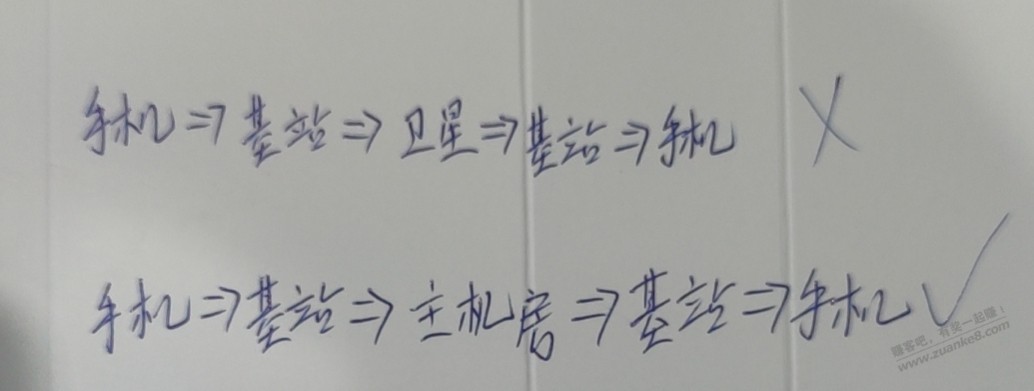 手机⇒基站⇒卫星⇒基站⇒手机 X
手机⇒基站⇒主机房⇒基站⇒手机 ✓
赚客吧，有奖一起赚！
www.zuanke8.com